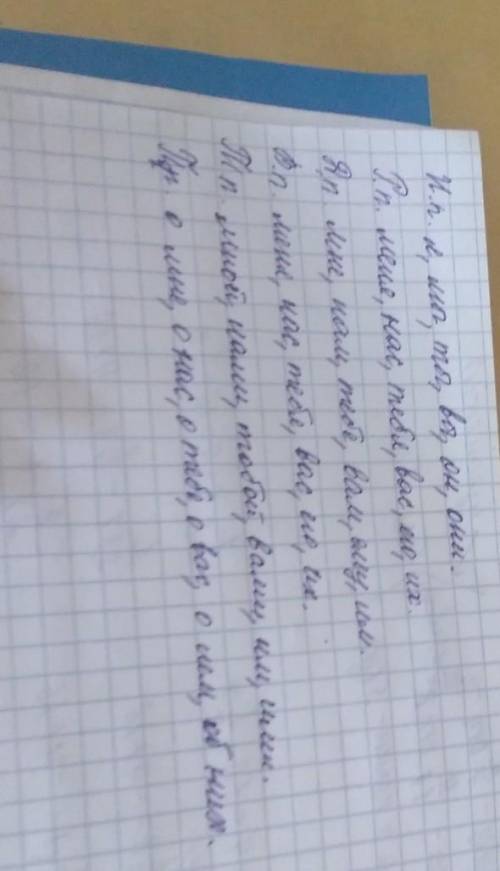 И.п. я, мы, ты, вы, он, они.
Р.п. меня, нас, тебя, вас, его, их.
Д.п. мне, нам, тебе, вам, ему, им.
В.п. меня, нас, тебя, вас, его, их.
Т.п. мной, нами, тобой, вами, им, ими.
Пр.п. о мне, о нас, о тебе, о вас, о нём, об них.